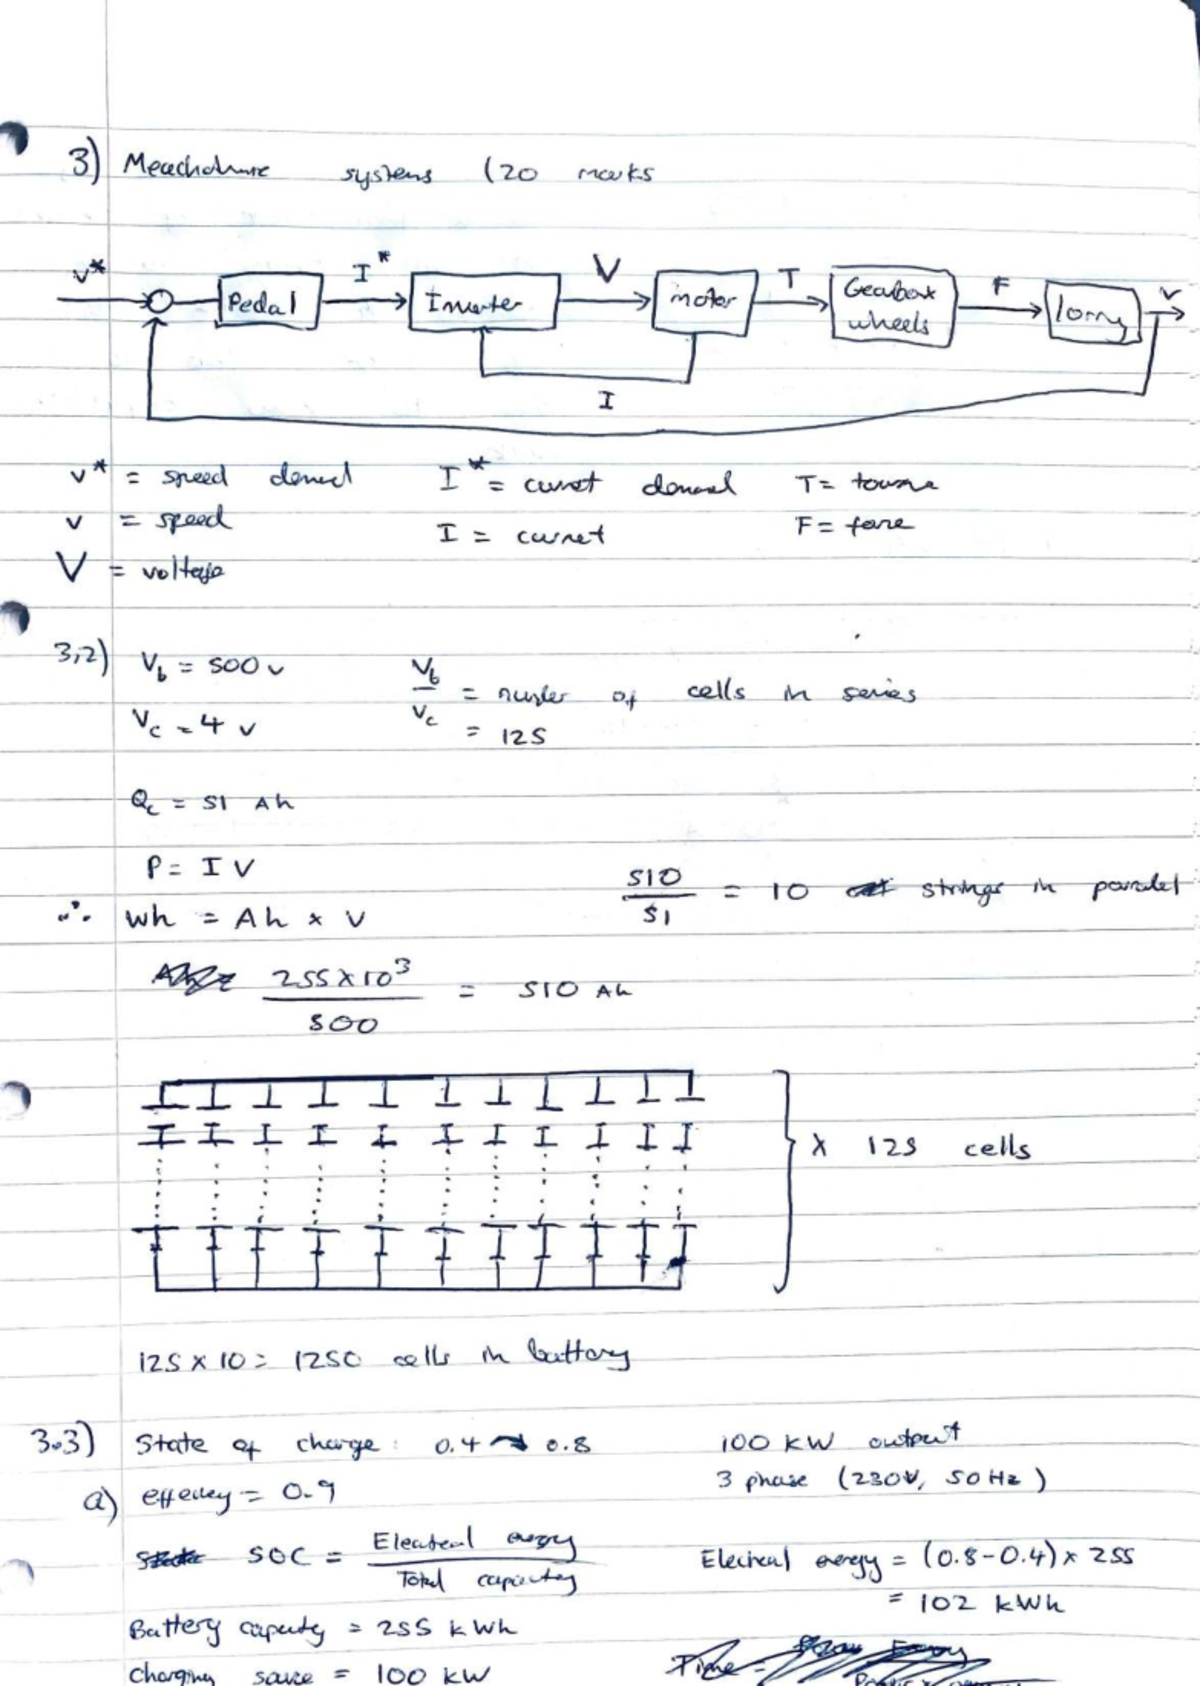 3) Meachohume systems (20 marks
v* Pedal I* Inverter V motor T Gearbox wheels F lorry v
I
v* = speed demand I* = current demand T = torque
v = speed I = current F = force
V = voltage
3.2) Vb = 500 v Vb/Vc = number of cells in series
Vc = 4 v = 125
Qc = 51 Ah
P = I V 510/51 = 10 strings in parallel
∴ Wh = Ah x V
255 x 10³/500 = 510 Ah
x 125 cells
125 x 10 = 1250 cells in battery
3.3) State of charge: 0.4 → 0.8 100 kW output
a) efficiency = 0.9 3 phase (230V, 50 Hz)
SOC = Electrical energy/Total capacity Electrical energy = (0.8-0.4) x 255
= 102 kWh
Battery capacity = 255 kWh
Charging source = 100 kW